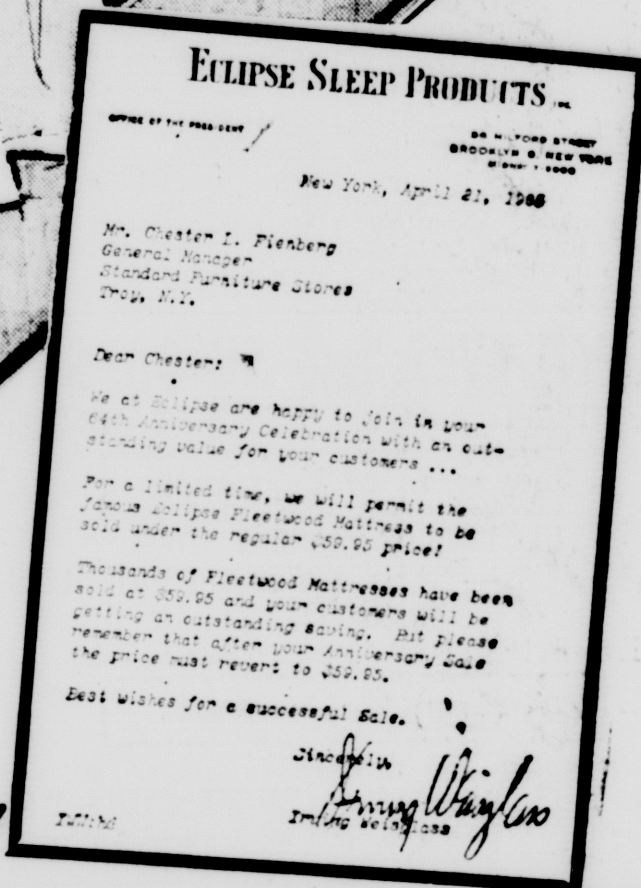 ECLIPSE SLEEP PRODUCTS INC.
OFFICE OF THE PRESIDENT
STREET
BROOKLYN 6, NEW YORK
New York, April 21, 1965
Mr. Chester I. Fienberg
General Manager
Standard Furniture Stores
Troy, N.Y.
Dear Chester:
We at Eclipse are happy to join in your
64th Anniversary Celebration with an out-
standing value for your customers ...
For a limited time, we will permit the
famous Eclipse Fleetwood Mattress to be
sold under the regular $59.95 price!
Thousands of Fleetwood Mattresses have been
sold at $59.95 and your customers will be
getting an outstanding saving. But please
remember that after your Anniversary Sale
the price must revert to $59.95.
Best wishes for a successful Sale.
Sincerely,
Irving Weisglass
Irving Weisglass